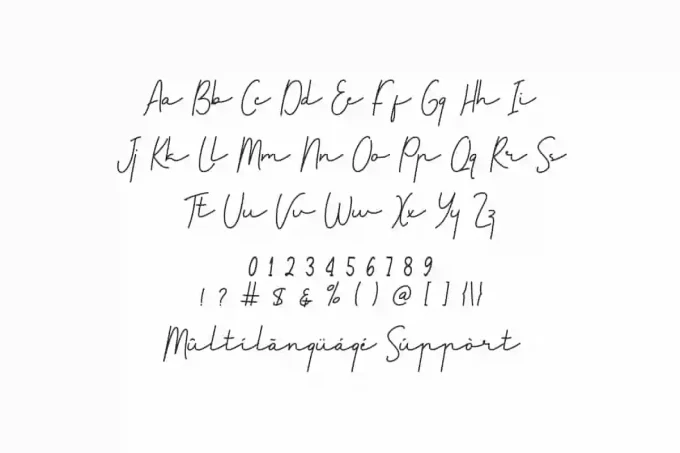 Aa Bb Cc Dd Ee Ff Gg Hh Ii
Jj Kk Ll Mm Nn Oo Pp Qq Rr Ss
Tt Uu Vv Ww Xx Yy Zz
0 1 2 3 4 5 6 7 8 9
! ? # $ & % ( ) @ [ ] { | \ }
Mûltílãngüágé Súppòrt